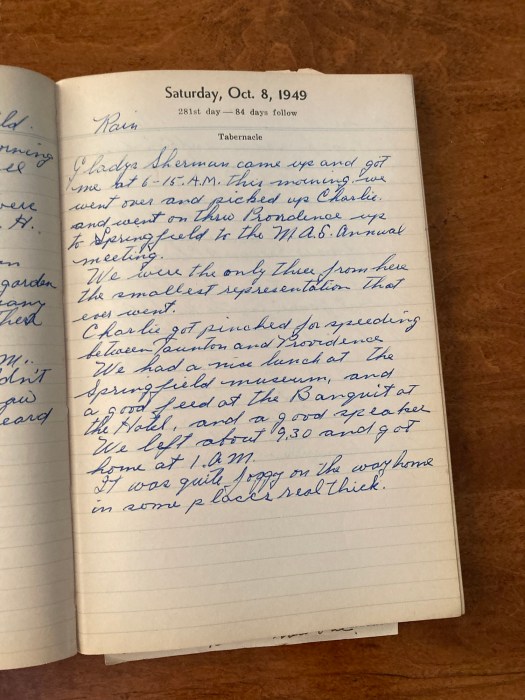 ld.
orning
ell
were
. H.
on
garden
many
M.
dn't
eard
Saturday, Oct. 8, 1949
281st day — 84 days follow
Rain
Tabernacle
Gladys Sherman came up and got
me at 6-15 A.M. this morning. we
went over and picked up Charlie.
and went on thru Prondence up
to Springfield to the M.A.S. Annual
meeting.
We were the only three from here
the smallest representation that
ever went.
Charlie got pinched for speeding
between Taunton and Providence
We had a nise lunch at the
Springfield museum, and
a good feed at the Banquit at
the Hotel, and a good speaker
We left about 9.30 and got
home at 1. A.M.
It was quite foggy on the way home
in some places real thick.